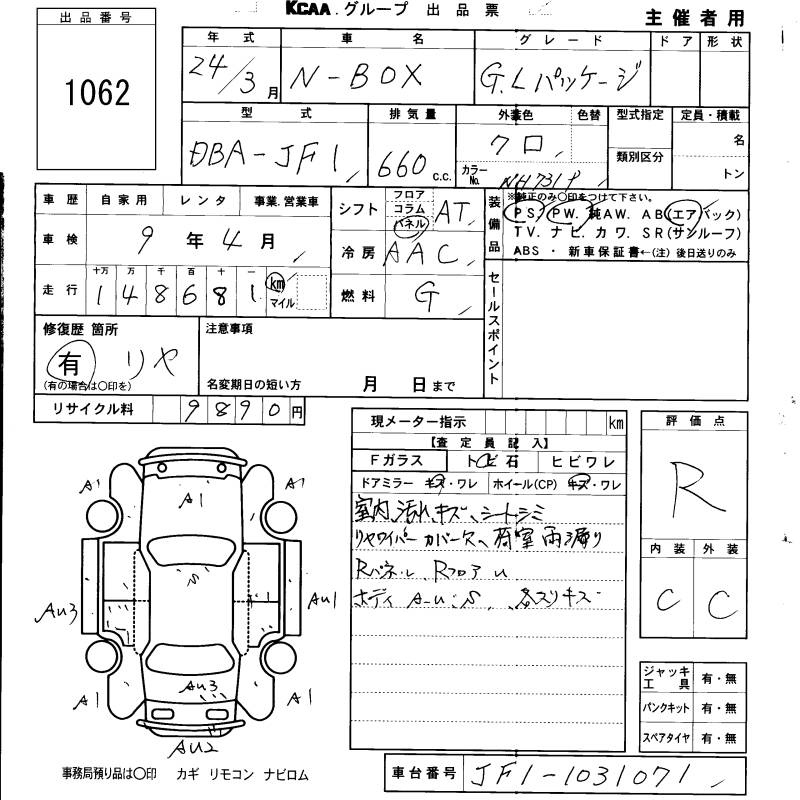 KCAA.グループ 出品票
主催者用
出品番号
1062
年式 車名 グレード ドア 形状
24/3月 N-BOX G.Lパッケージ
型式 排気量 外装色 色替 型式指定 定員・積載
DBA-JF1 660c.c. クロ 名
カラーNo. NH731P 類別区分 トン
車歴 自家用 レンタ 事業.営業車
車検 9年4月
走行 十万 万 千 百 十 一
148681 km マイル
シフト フロア コラム パネル AT
冷房 AAC
燃料 G
装備品
※純正のみ○印をつけて下さい。
PS. PW. 純AW. AB(エアバック)
TV. ナビ. カワ. SR(サンルーフ)
ABS ・ 新車保証書←(注)後日送りのみ
セールスポイント
修復歴箇所
有 リヤ
(有の場合は○印を)
注意事項
名変期日の短い方 月 日まで
リサイクル料 9890円
現メーター指示 km
【査定員記入】
Fガラス トビ石 ヒビワレ
ドアミラー キズ・ワレ ホイール(CP) キズ・ワレ
室内汚れ、キズ、シートシミ
リヤワイパーカバー欠、荷室雨漏り
Rパネル、RフロアU
ボディ A-U:S、各スリキズ
評価点
R
内装 外装
C C
ジャッキ工具 有・無
パンクキット 有・無
スペアタイヤ 有・無
A1 A1 A1
S
AU3 AU1
A1 AU3 A1
AU2
事務局預り品は○印 カギ リモコン ナビロム
車台番号 JF1-1031071